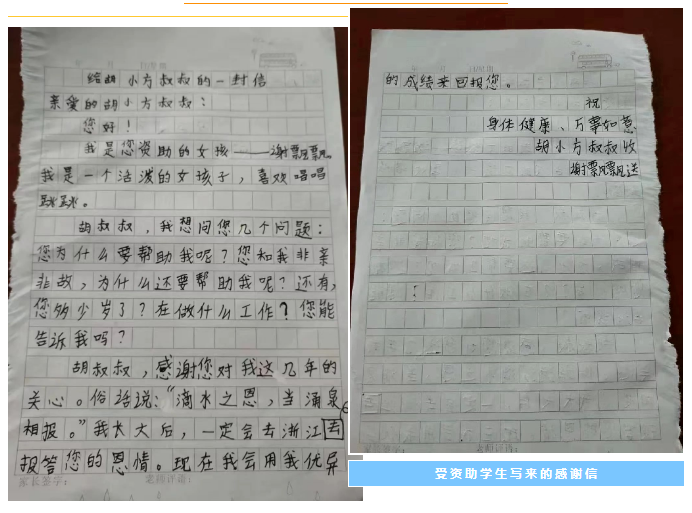 给胡小方叔叔的一封信
亲爱的胡小方叔叔：
您好！
我是您资助的女孩——谢飘飘。
我是一个活泼的女孩子，喜欢唱唱
跳跳。
胡叔叔，我想问您几个问题：
您为什么要帮助我呢？您和我非亲
非故，为什么还要帮助我呢？还有，
您多少岁了？在做什么工作？您能
告诉我吗？
胡叔叔，感谢您对我这几年的
关心。俗话说：“滴水之恩，当涌泉
相报。”我长大后，一定会去浙江去
报答您的恩情。现在我会用我优异
家长签字：
老师评语：
的成绩来回报您。
祝
身体健康、万事如意
胡小方叔叔收
谢飘飘送
受资助学生写来的感谢信